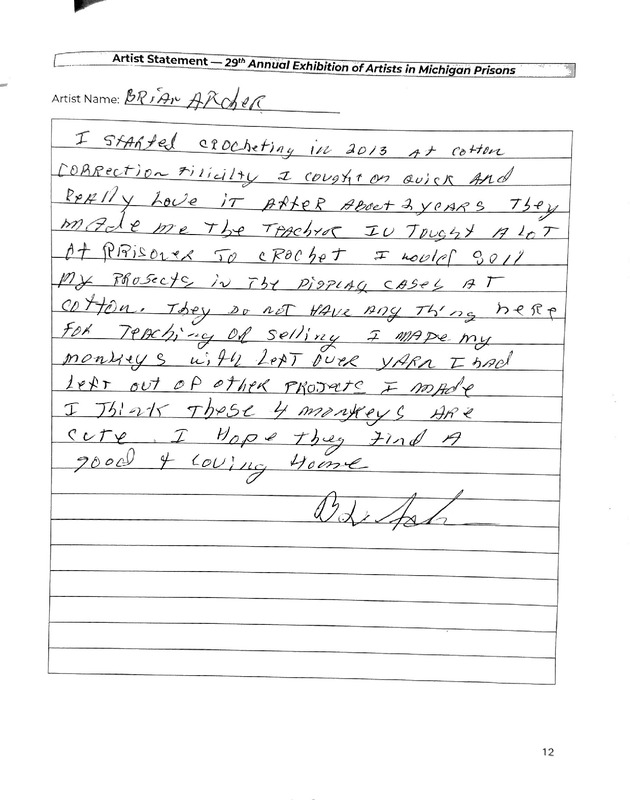 Artist Statement — 29th Annual Exhibition of Artists in Michigan Prisons
Artist Name: BRiAN ARcheR
I STARTed CROcheting in 2013 AT COTTON
CORRection Filicilty I cought on Quick AND
Really Love iT AFTeR ABout 2 yeARS They
mAde me The TeACheR IV Tought A LOT
OF PRisoner To CROCheT I would Sell
My PROJects in The DISPLAY CASES AT
COTTON. They Do NOT HAVe Any Thing heRe
FOR TeAching OR Selling I mADe my
monkeys with LeFT OVeR YARN I had
LeFT out OF OTHeR PROJects I mADe
I Think These 4 monkeys ARe
cuTe. I Hope they Find A
good & Loving Home
12